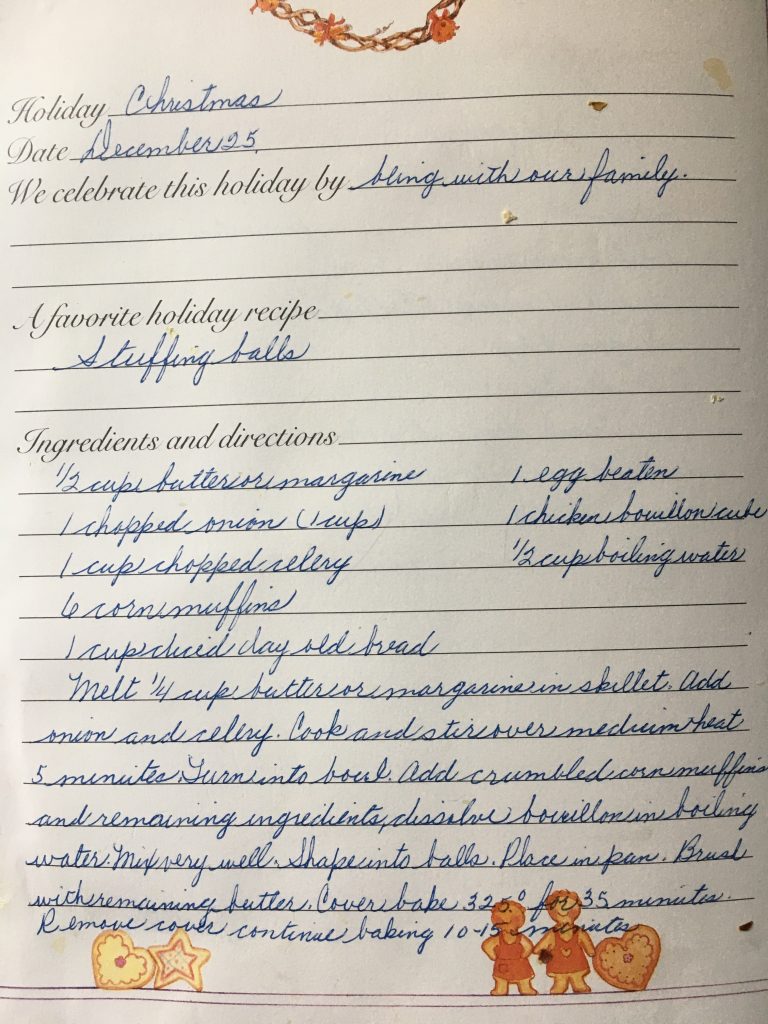 Holiday Christmas
Date December 25.
We celebrate this holiday by being with our family.
A favorite holiday recipe
Stuffing balls
Ingredients and directions
1/2 cup butter or margarine 1 egg beaten
1 chopped onion (1 cup) 1 chicken bouillon cube
1 cup chopped celery 1/2 cup boiling water
6 corn muffins
1 cup diced day old bread
Melt 1/4 cup butter or margarine in skillet. Add
onion and celery. Cook and stir over medium heat
5 minutes. Turn into bowl. Add crumbled corn muffins
and remaining ingredients, dissolve bouillon in boiling
water. Mix very well. Shape into balls. Place in pan. Brush
with remaining butter. Cover bake 325° for 35 minutes.
Remove cover continue baking 10-15 minutes